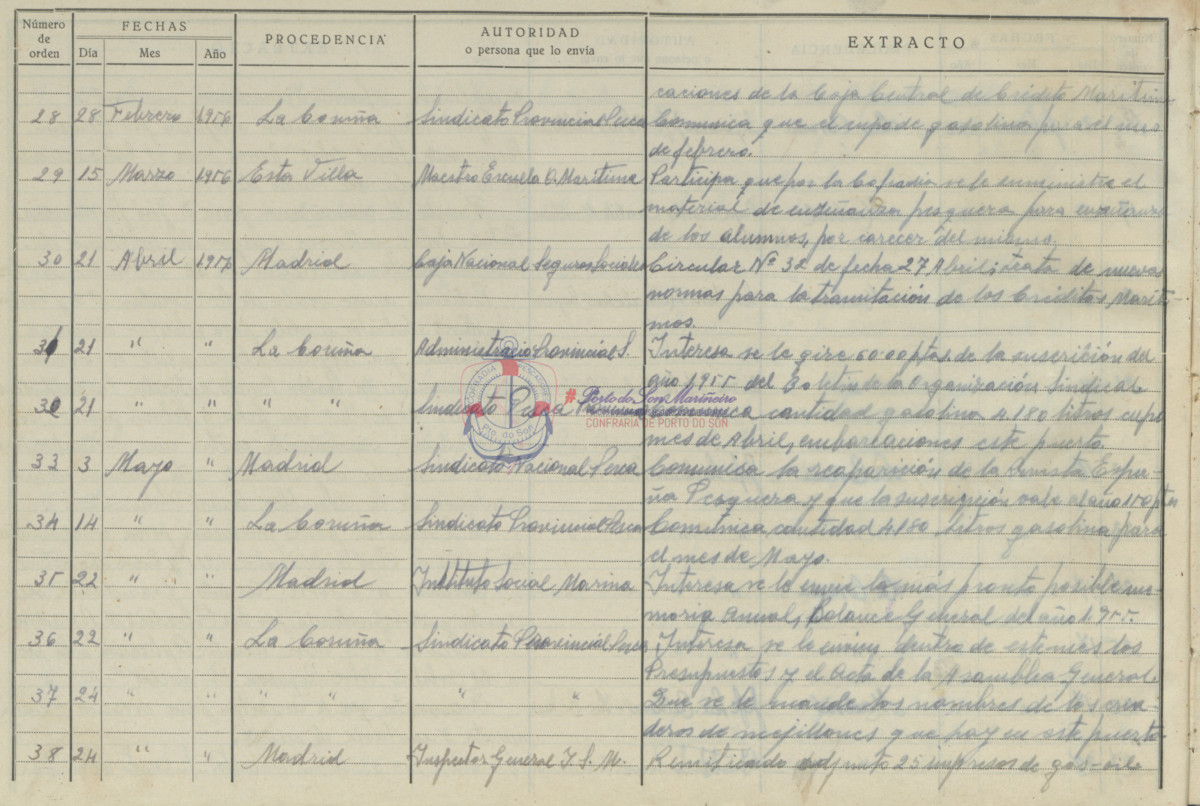 Número de orden FECHAS Día Mes Año PROCEDENCIA AUTORIDAD o persona que lo envía EXTRACTO
caciones de la Caja Central de Crédito Marítimo
28 28 Febrero 1956 La Coruña Sindicato Provincial Pesca Comunica que el cupo de gasolina para el mes
de febrero.
29 15 Marzo 1956 Esta Villa Maestro Escuela O. Maritima Participa que por la Cofradia se le suministre el
material de enseñanza pesquera para enseñanza
de los alumnos, por carecer del mismo.
30 21 Abril 1956 Madrid Caja Nacional Seguros Sociales Circular Nº 32 de fecha 27 Abril; trata de nuevas
normas para la tramitación de los Créditos Maríti-
mos.
31 21 " " La Coruña Administracio Provincial S. Interesa se le gire 60'00 ptas. de la suscrición del
año 1955 del Boletin de la Organización Sindical
32 21 " " " " Sindicato Pesca Provincial Comunica cantidad gasolina 4.180 litros cupo
mes de Abril, embarcaciones este puerto.
33 3 Mayo " Madrid Sindicato Nacional Pesca Comunica la reaparición de la revista Espa-
ña Pesquera y que la suscripción vale al año 150 ptas
34 14 " " La Coruña Sindicato Provincial Pesca Comunica cantidad 4180 litros gasolina para
el mes de Mayo.
35 22 " " Madrid Instituto Social Marina Interesa se le envie lo más pronto posible me-
moria Anual, Balance General del año 1955.
36 22 " " La Coruña Sindicato Provincial Pesca Interesa se le envien dentro de este mes los
Presupuestos y el Acta de la Asamblea General.
37 24 " " " " " " Que se le mande los nombres de los cria-
deros de mejillones que hay en este puerto.
38 24 " " Madrid Inspector General I. S. M. Remitiendo adjunto 25 impresos de gas-oil
COFRADIA PESCADORES
Pto. do Son
#Porto do Son Mariñeiro
CONFRARIA DE PORTO DO SON